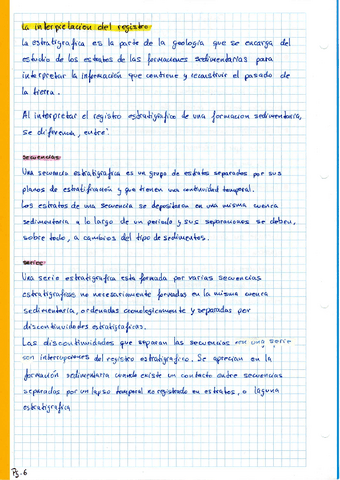 La interpretación del registro
La estratigrafica es la parte de la geologia que se encarga del
estudio de los estratos de las formaciones sedimentarias para
interpretar la información que contiene y reconstruir el pasado de
la tierra.
Al interpretar el registro estratigrafico de una formacion sedimentaria,
se diferencia, entre:
Secuencias
Una secuencia estratigrafica es un grupo de estratos separados por sus
planos de estratificación y que tienen una continuidad temporal.
Los estratos de una secuencia se depositaron en una misma cuenca
sedimentaria a lo largo de un periodo y sus separaciones se deben,
sobre todo, a cambios del tipo de sedimentos.
Series
Una serie estratigrafica esta formada por varias secuencias
estratigraficas no necesariamente formadas en la misma cuenca
sedimentaria, ordenadas cronologicamente y separadas por
discontinuidades estratigraficas.
Las discontinuidades que separan las secuencias en una serie
son interrupciones del registro estratigrafico. Se aprecian en la
formación sedimentaria cuando existe un contacto entre secuencias
separadas por un lapso temporal no registrado en estratos, o laguna
estratigrafica
Pg. 6